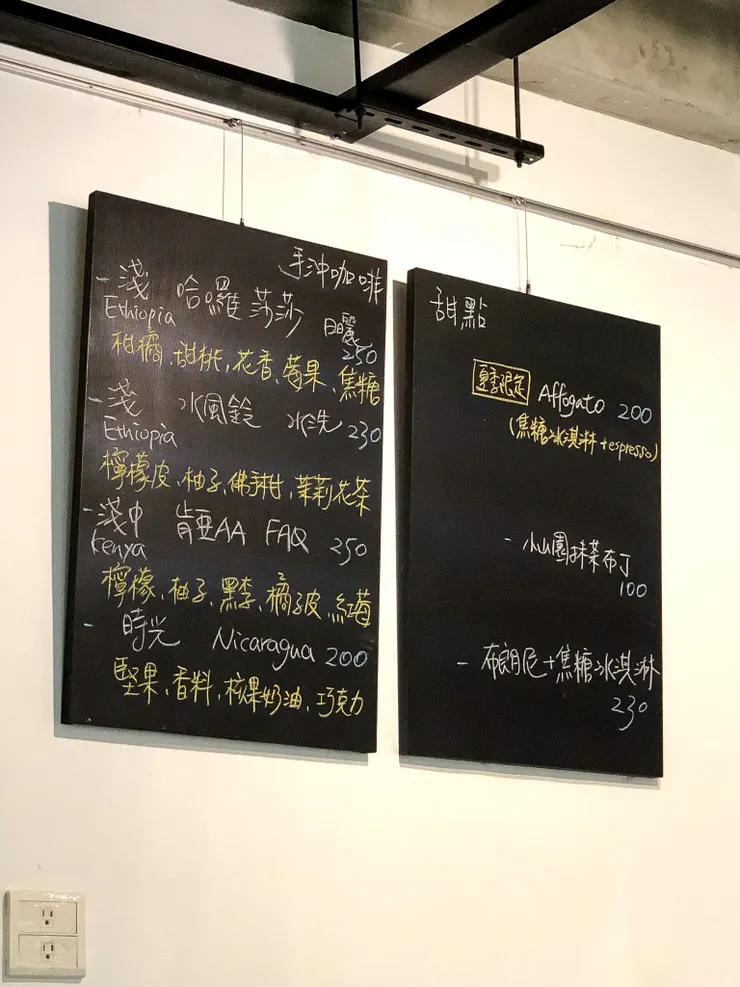 手沖咖啡
- 淺 哈囉莎莎 日曬
Ethiopia 250
柑橘、甜桃、花香、莓果、焦糖
- 淺 水風鈴 水洗 230
Ethiopia
檸檬皮、柚子、佛手柑、茉莉花茶
- 淺中 肯亞AA FAQ 250
Kenya
檸檬、柚子、黑李、橘子皮、紅莓
- 時光 Nicaragua 200
堅果、香料、核果奶油、巧克力
甜點
夏季限定 Affogato 200
(焦糖冰淇淋+espresso)
- 小山園抹茶布丁
100
- 布朗尼+焦糖冰淇淋
230